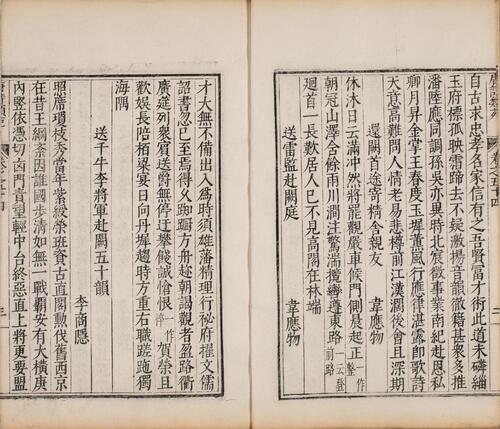 自古求忠孝名家信有之吾賢富才術此道未磷緇
玉府標孤映霜蹄去不疑激揚音韻徹籍甚衆多推
潘陸應同調孫吳亦異時北宸徵事業南紀赴恩私
卿月昇金掌王春度玉墀薰風行應律湛露卽歌詩
天意高難問人情老易悲樽前江漢濶後會且深期
還闕首途寄精舍親友 韋應物
休沐日云滿冲然將罷觀嚴車候門側晨起正一作整
朝冠山澤含餘雨川澗注驚湍攬轡遵東路一云登前路
廻首一長歎居人已不見高閣在林端
送雷監赴闕庭 韋應物
才大無不備出入爲時須雄藩精理行祕府擢文儒
詔書忽已至焉得久踟蹰方舟趂朝謁觀者盈路衢
廣筵列衆賓送爵無停迂攀餞誠愴恨一作悴賀榮且
歡娱長陪栢梁宴日向丹墀趨時方重右職蹉跎獨
海隅
送千牛李將軍赴闕五十韻
李商隱
照席瓊枝秀當年紫綬榮班資古直閣勲伐舊西京
在昔王綱紊因誰國步清如無一戰霸安有大橫庚
內竪依憑切凶門責望輕中台終惡直上將更要盟